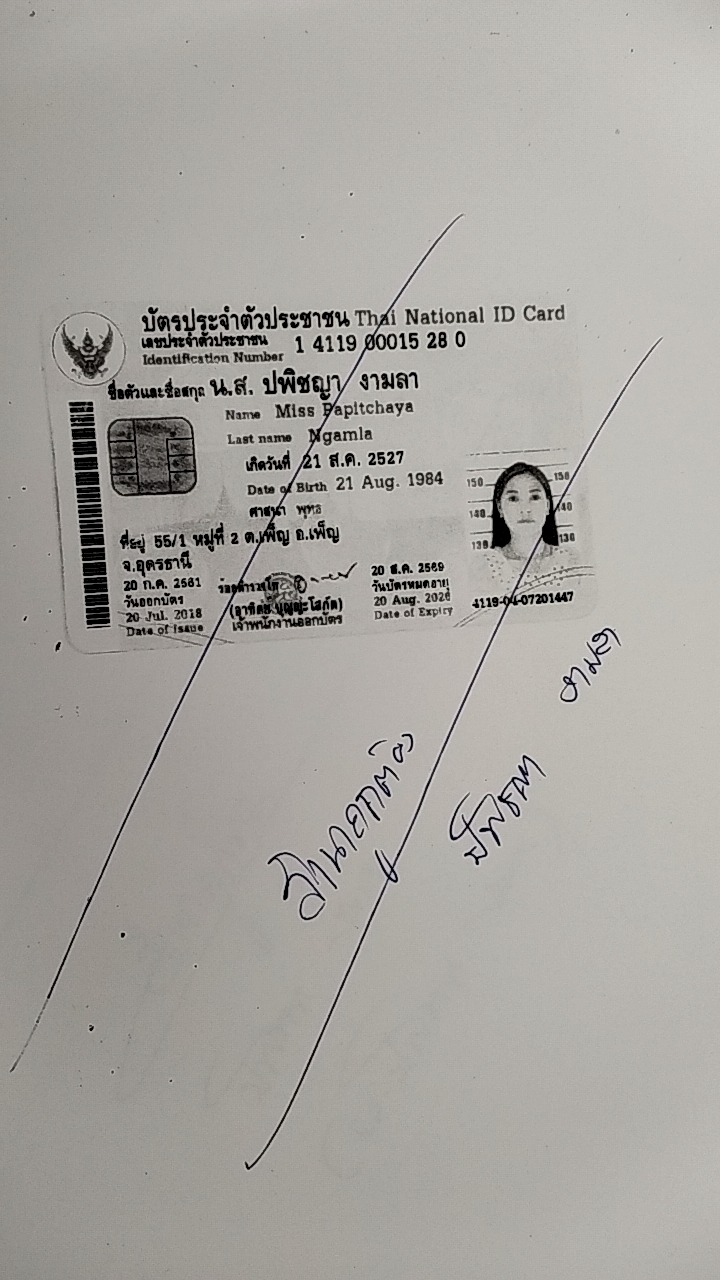 บัตรประจำตัวประชาชน Thai National ID Card
เลขประจำตัวประชาชน
Identification Number 1 4119 00015 28 0
ชื่อตัวและชื่อสกุล น.ส. ปพิชญา งามลา
Name Miss Papitchaya
Last name Ngamla
เกิดวันที่ 21 ส.ค. 2527
Date of Birth 21 Aug. 1984
ศาสนา พุทธ
ที่อยู่ 55/1 หมู่ที่ 2 ต.เพ็ญ อ.เพ็ญ
จ.อุดรธานี
20 ก.ค. 2561
วันออกบัตร
20 Jul. 2018
Date of Issue
เจ้าพนักงานออกบัตร
20 ส.ค. 2569
วันบัตรหมดอายุ
20 Aug. 2026
Date of Expiry
150 150
140 140
130 130
4119-04-07201447
สำเนาถูกต้อง
ปพิชญา งามลา